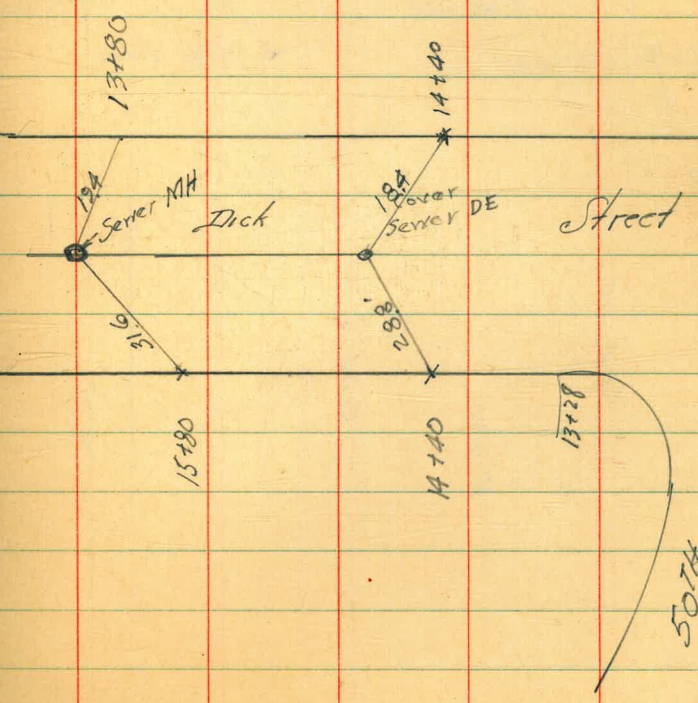 13+80
14+40
19.4
Sewer MH
Dick
18.4
Cover
Sewer DE
Street
31.6
28.8'
15+80
14+40
13+28
50TH